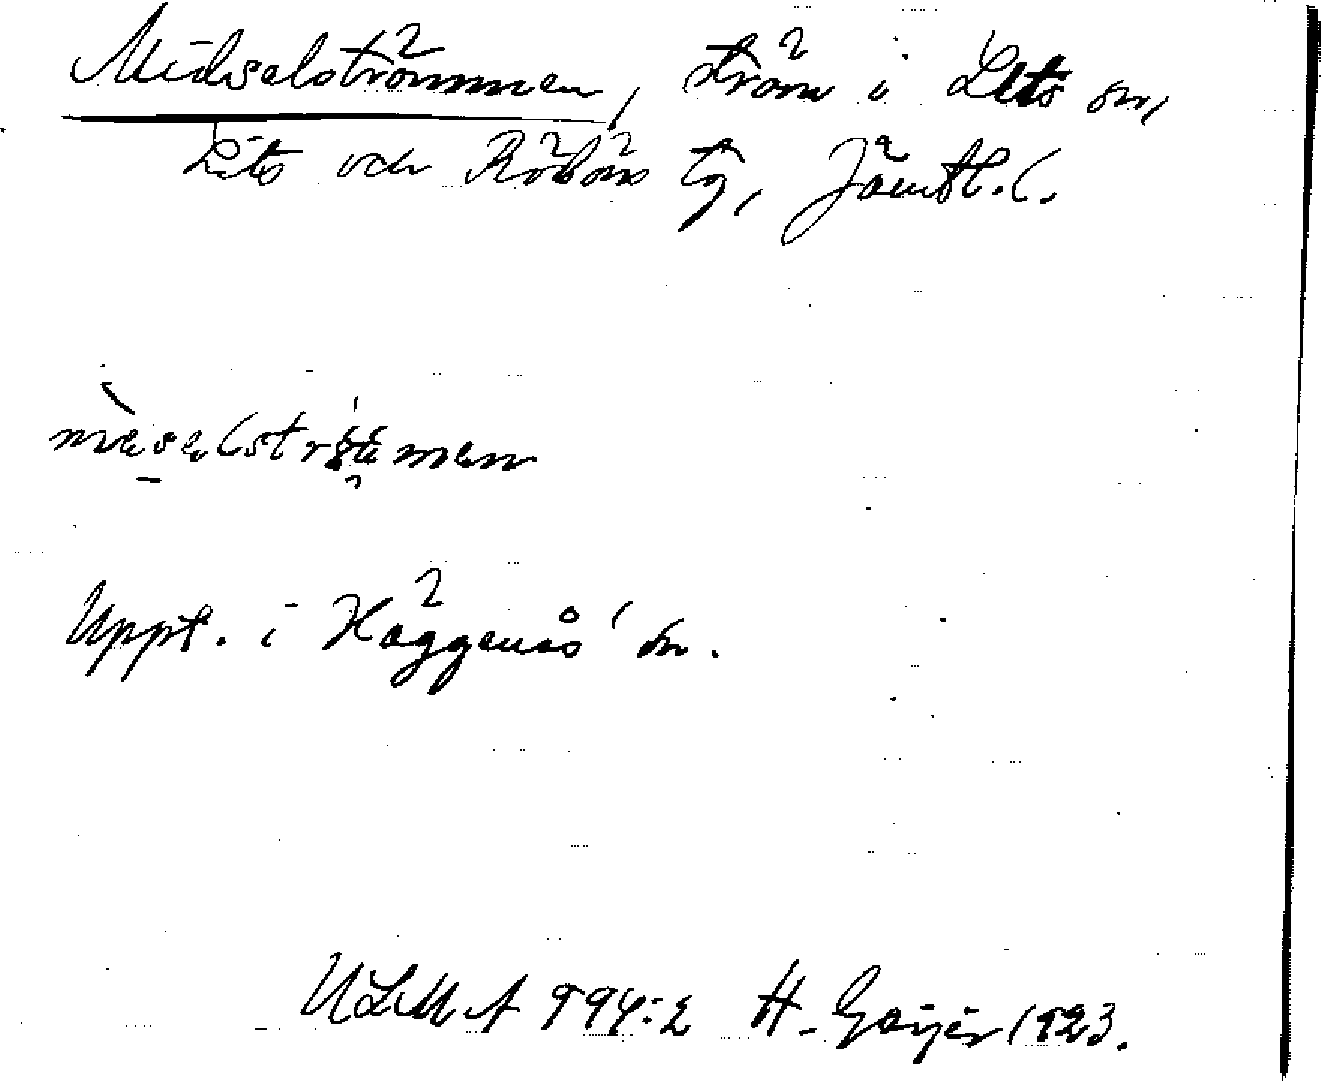 Midselströmmen, ström i Lits sn,
Lits och Rödöns tg, Jämtl. l.
Uppt. i Häggenås' sn.
ULMA 994:2 H. Geijer 1923.